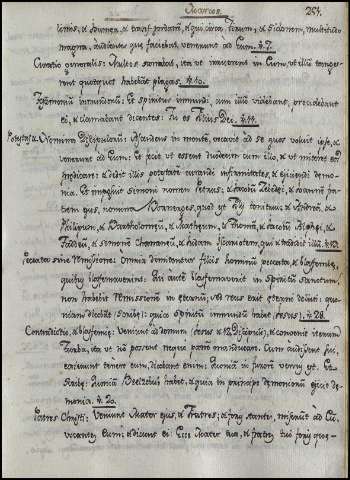 Marcos. 251.
limis, & Idumea, & trans Jordanem, & qui circa Tirum, & Sidonem, multitudo
magna, audientes quæ faciebat, venerunt ad Eum. ℣. 7.
Curatio generalis: Multos sanabat, ita ut irruerent in Eum, ut illum tange-
rent quotquot habebant plagas. ℣. 10.
Testimonia immundi: Et spiritus immundi, cum illum videbant, procidebant
ei, & clamabant dicentes: Tu es filius Dei. ℣. 11.
& Nomina Discipulorum: Ascendens in montem, vocavit ad se quos voluit ipse, &
venerunt ad Eum: Et fecit ut essent duodecim cum illo, & ut mitteret eos
prædicare: & dedit illis potestatem curandi infirmitates, & ejiciendi demo-
nia. Et imposuit Simoni nomen Petrus: & Jacobum Zebedei, & Joannem fra-
trem ejus, nomina Boanerges, quod est filij tonitrui: & Andream, &
Philipum, & Bartholomeum, & Matheum, & Thomam, & Jacobum Alphei, &
Tadeum, & Simonem Chananeum, & Judam Iscariotem, qui & tradidit illum. ℣.13.
Peccatas sine Remissione: Omnia dimittentur filiis hominum peccata, & blasfemie,
quibus blasfemaverint: Qui autem blasfemaverit in Spiritum Sanctum
non habebit Remissionem in æternum, sed reus erit æterni delicti: quo-
niam dicebant (Scribe): quia Spiritum immundum habet (Jesus). ℣. 28.
Contradictio, & blasfemie: Veniunt ad domum (Jesus & 12 Discipuli), & convenit iterum
turba, ita ut non possent neque panem manducare. Cum audissent sui,
exierunt tenere eum; dicebant enim: Quoniam in furorem versus est. Et
Scribe: Quoniam Beelzebub habet, & quia in principe demoniorum ejicit de-
monia. ℣. 20.
Fratres Christi: Veniunt Mater ejus, & Fratres; & foris stantes, miserunt ad Eum
vocantes Eum; & dicunt ei: Ecce Mater tua, & fratres tui foris quæ-